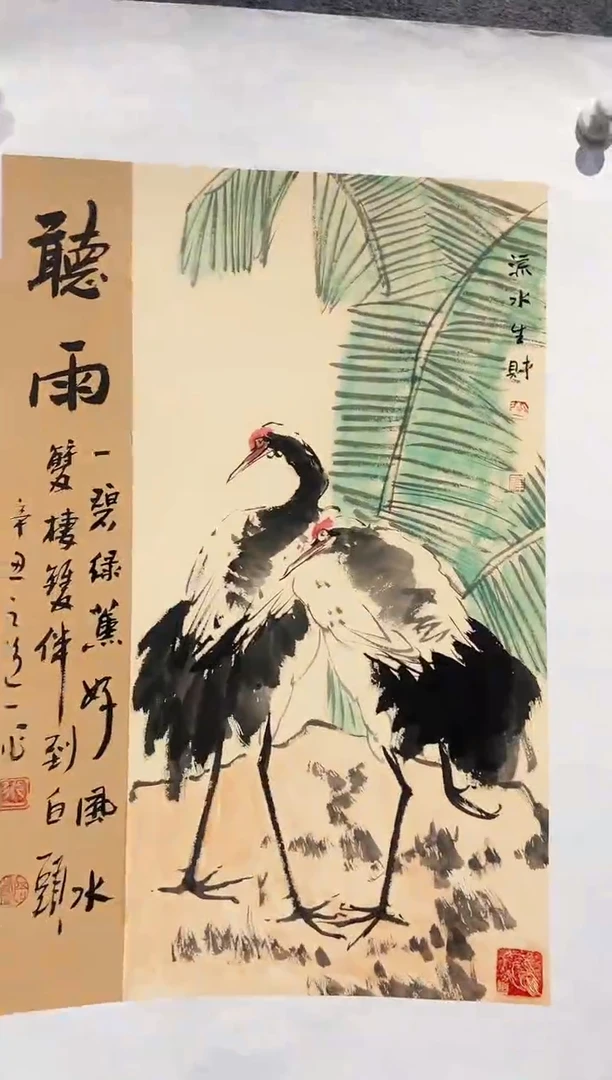 流水生財
聽雨
一碧綠蕉好風水
雙棲雙伴到白頭
辛丑之道一作